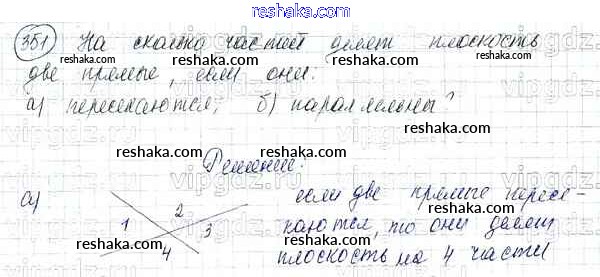 reshaka.com
351 На сколько частей делят плоскость
две прямые, если они:
а) пересекаются; б) параллельны?
reshaka.com reshaka.com reshaka.com
Решение:
reshaka.com reshaka.com
а) если две прямые пересе-
1 2 3 4 каются, то они делят
плоскость на 4 части
reshaka.com reshaka.com
vipgdz.ru